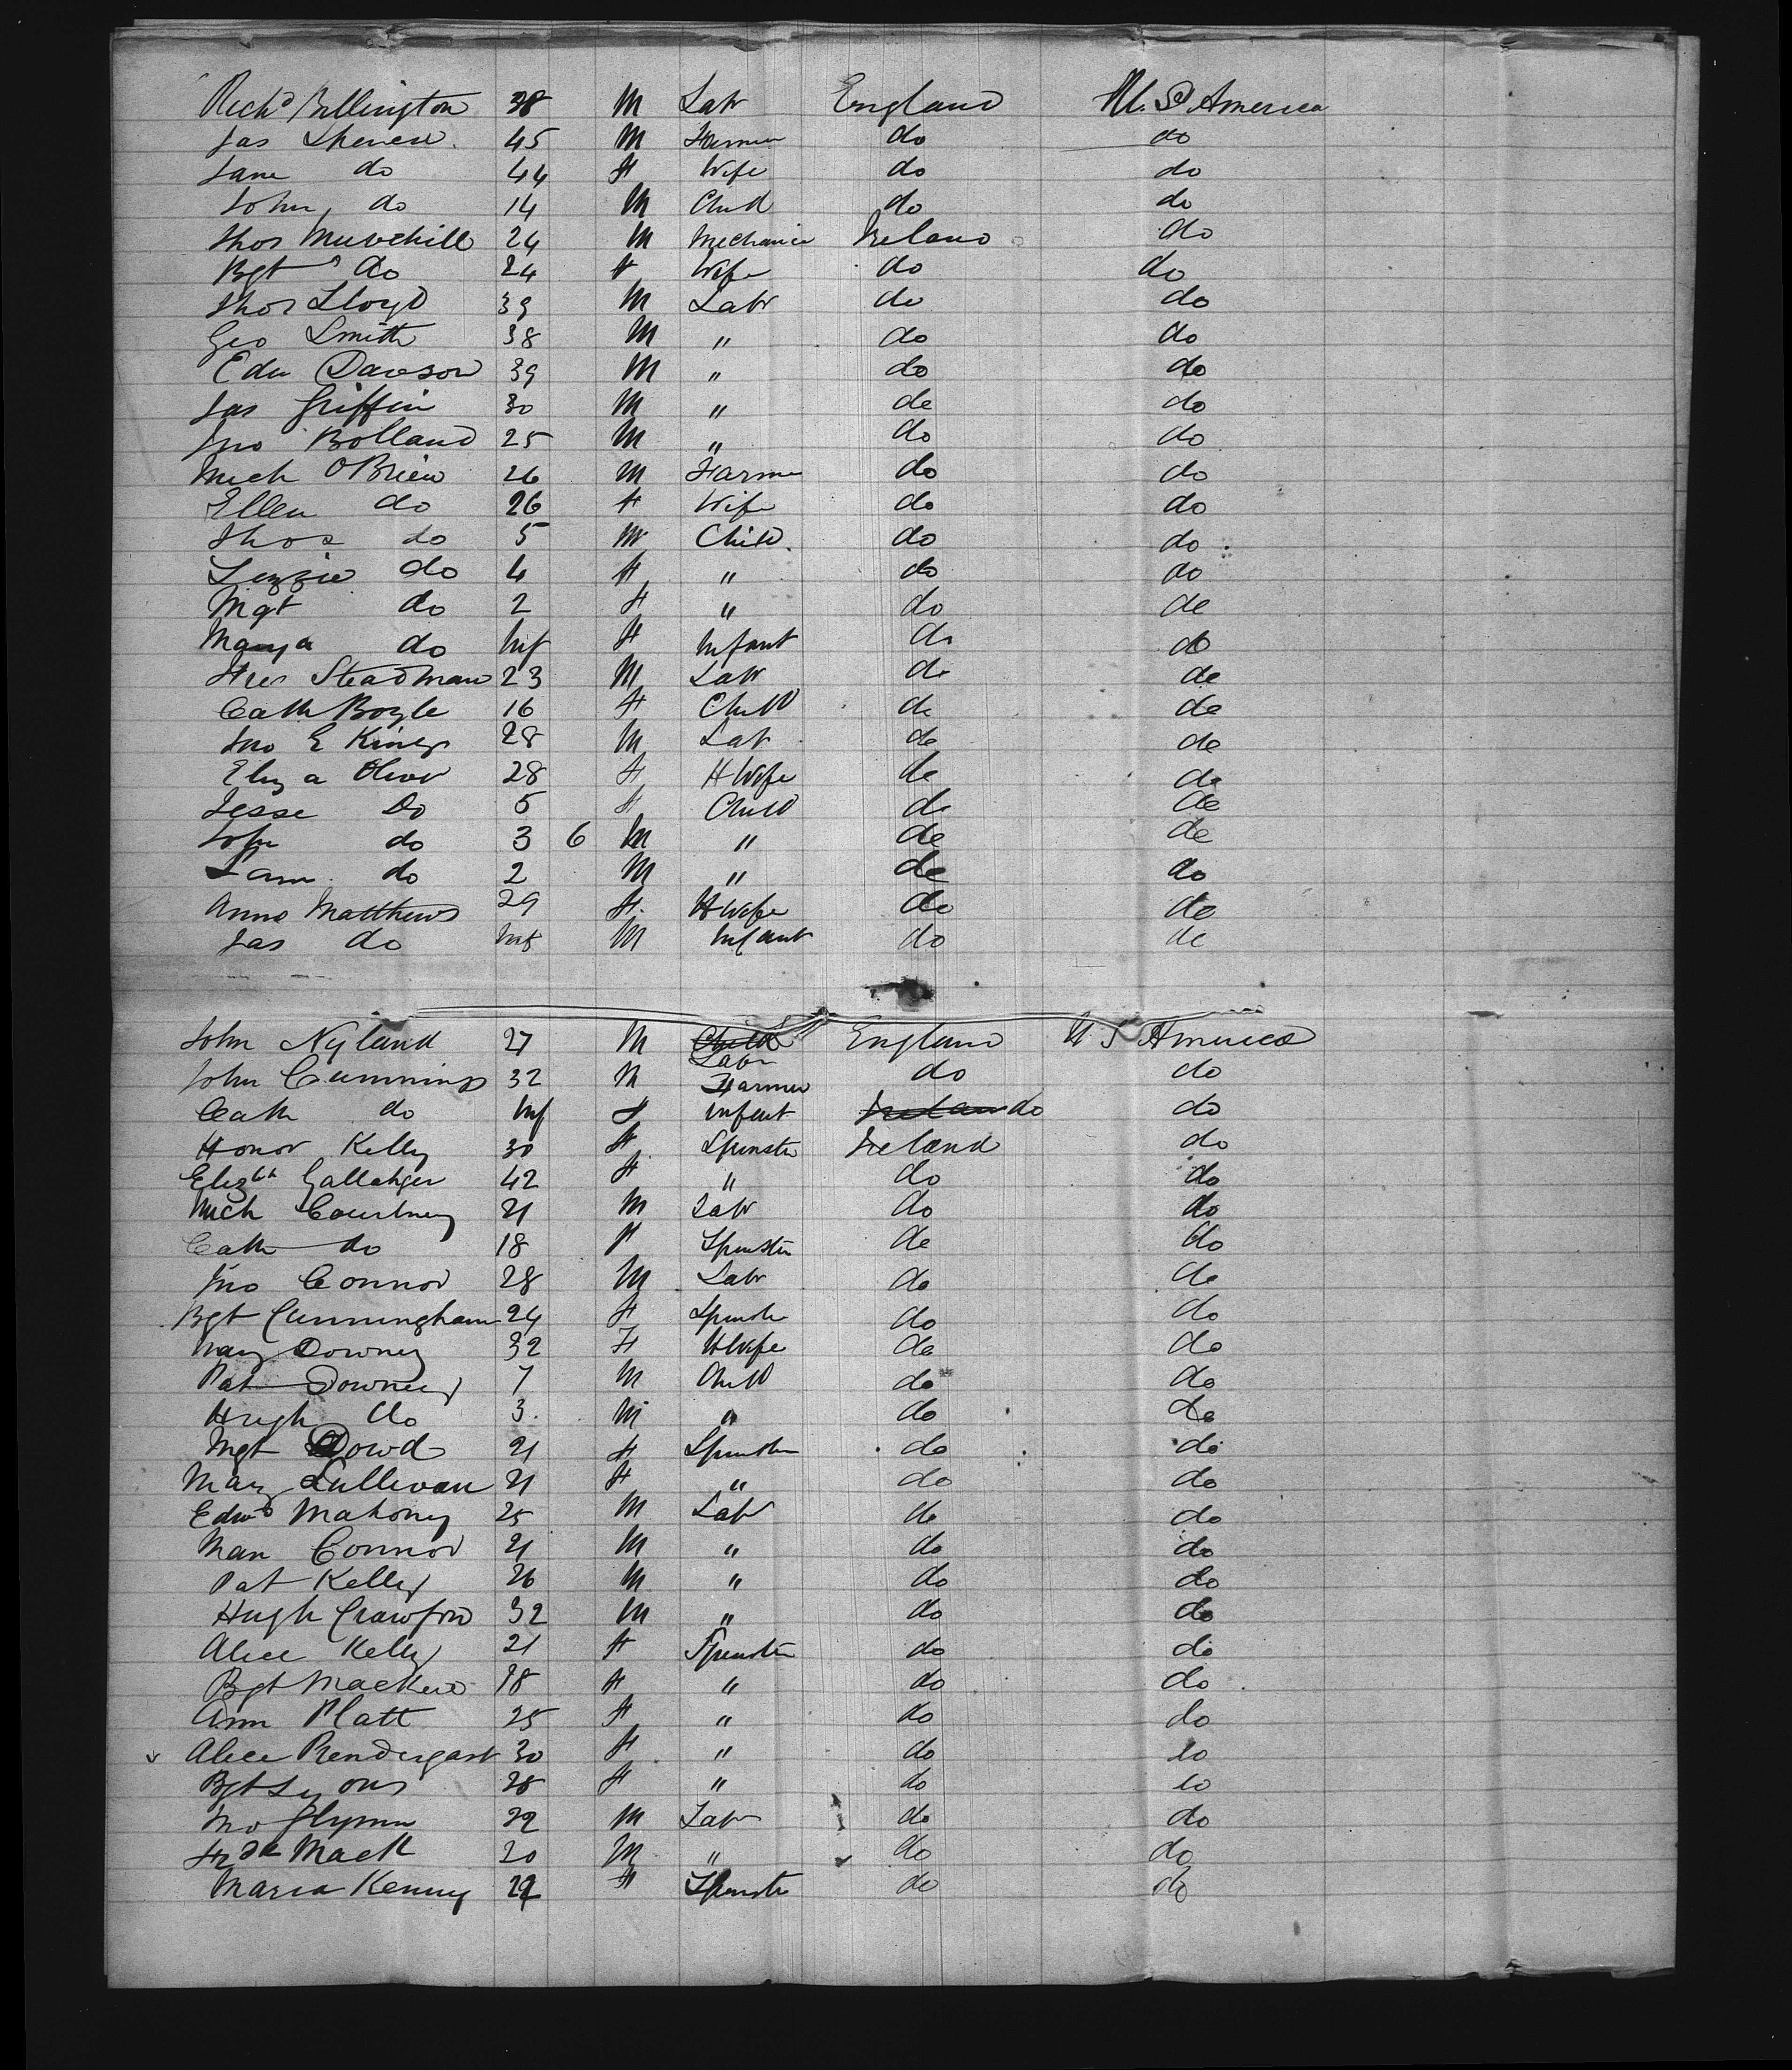 Richd Billington 38 M Labr England U. S. America
Jas 45 M Farmer do do
Jane do 44 F Wife do do
John do 14 M Child do do
Thos 24 M Mechanic Ireland do
Bgt do 24 F Wife do do
Thos Lloyd 39 M Labr do do
Geo Smith 38 M " do do
Edw Dawson 39 M " do do
Jas Griffin 30 M " do do
Jno Bolland 25 M " do do
Mich O'Brien 26 M Farmer do do
Ellen do 26 F Wife do do
Thos do 5 M Child do do
Lizzie do 4 F " do do
Mgt do 2 F " do do
do Inf F Infant do do
Steadman 23 M Labr do do
Cath Boyle 16 F Child do do
Jno E King 28 M Lab do do
Eliza Oliver 28 F H Wife do do
Jesse Do 5 F Child do do
John do 3 6 M " do do
Sam do 2 M " do do
Anne Matthews 29 F H Wife do do
Jas do Inf M Infant do do
John Nyland 27 M Child England U S America
Labr
John Cummings 32 M Farmer do do
Cath do Inf F Infant Ireland do do
Honor Kelly 30 F Spinster Ireland do
Elizbth Gallahger 42 F " do do
Mich Courtney 21 M Labr do do
Cath do 18 F Spinster do do
Jno Connor 28 M Labr do do
Bgt Cunningham 24 F Spinster do do
Mary Downey 32 F H Wife do do
Pat Downey 7 M Child do do
Hugh do 3 M " do do
Mgt Dowd 21 F Spinster do do
Mary Sullivan 21 F " do do
Edwd Mahony 25 M Labr do do
Connor 21 M " do do
Pat Kelly 26 M " do do
Hugh Crawford 32 M " do do
Alice Kelly 21 F Spinster do do
Bgt 18 F " do do
Ann Platt 25 F " do do
Alice Prendergast 30 F " do do
Bgt Lyons 28 F " do do
Jno Glynn 22 M Labr do do
Frdk Mack 20 M " do do
Maria Kenny 22 F Spinster do do